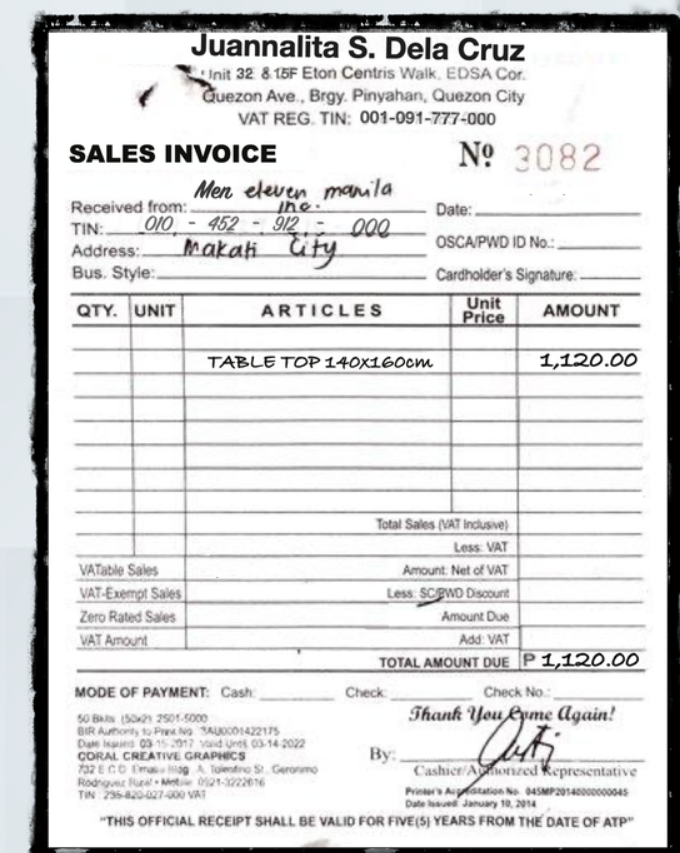 Juannalita S. Dela Cruz
Unit 32 & 15F Eton Centris Walk, EDSA Cor.
Quezon Ave., Brgy. Pinyahan, Quezon City
VAT REG. TIN: 001-091-777-000
SALES INVOICE
Nº 3082
Men eleven manila
Received from: inc.
Date:
TIN: 010 - 452 - 912 - 000
OSCA/PWD ID No.:
Address: Makati City
Bus. Style:
Cardholder's Signature:
QTY. UNIT ARTICLES Unit Price AMOUNT
TABLE TOP 140x160cm 1,120.00
Total Sales (VAT Inclusive)
Less: VAT
VATable Sales Amount: Net of VAT
VAT-Exempt Sales Less: SC/PWD Discount
Zero Rated Sales Amount Due
VAT Amount Add: VAT
TOTAL AMOUNT DUE P 1,120.00
MODE OF PAYMENT: Cash: Check: Check No.:
Thank You Come Again!
50 Bklts. (50x2) 2501-5000
BIR Authority to Print No. 3AU0001422175
Date Issued 03-15-2017 Valid Until 03-14-2022
CORAL CREATIVE GRAPHICS
732 E.C.D. Bldg. A. Tolentino St., Geronimo
Rodriguez Rizal • Mobile: 0921-3222616
TIN: 235-820-027-000 VAT
By:
Cashier/Authorized Representative
Printer's Accreditation No. 045MP20140000000045
Date Issued: January 10, 2014
"THIS OFFICIAL RECEIPT SHALL BE VALID FOR FIVE(5) YEARS FROM THE DATE OF ATP"